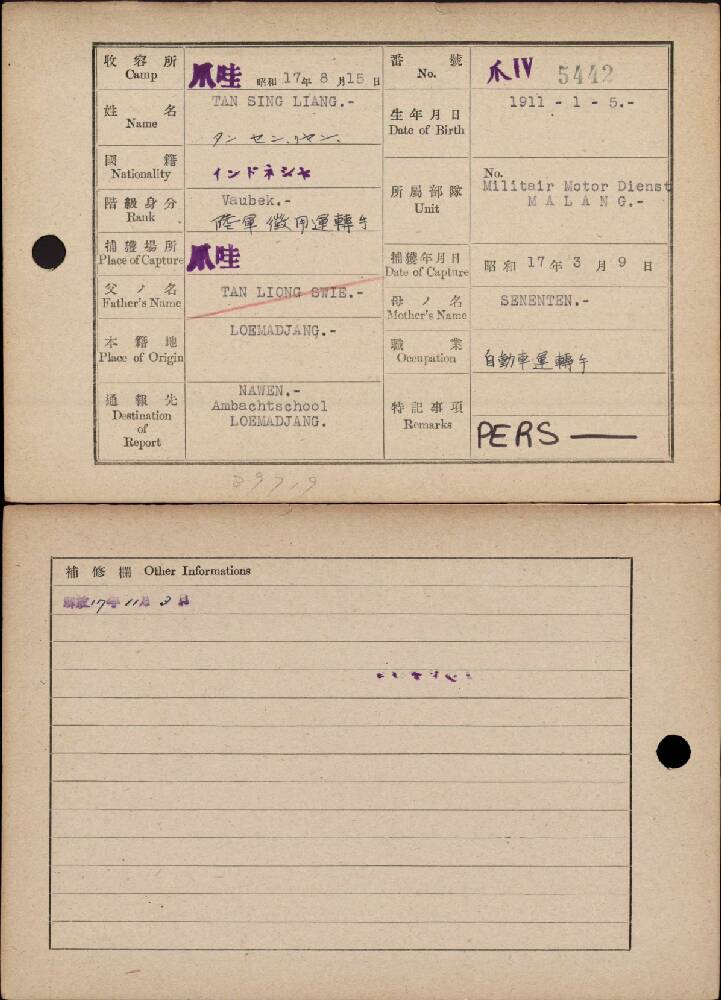 收容所 爪哇 昭和 17年 8月15日 番號 爪IV 5442
Camp No.
姓名 TAN SING LIANG.- 生年月日 1911 - 1 - 5.-
Name タン セン.リヤン. Date of Birth
國籍 インドネシヤ
Nationality
階級身分 Vaubek.- 所屬部隊 No. Militair Motor Dienst
Rank 陸軍徴用運轉手 Unit MALANG.-
捕獲場所 爪哇 捕獲年月日 昭和 17年 3月 9日
Place of Capture Date of Capture
父ノ名 TAN LIONG SWIE.- 母ノ名 SENENTEN.-
Father's Name Mother's Name
本籍地 LOEMADJANG.- 職業 自動車運轉手
Place of Origin Occupation
通報先 NAWEN.- 特記事項
Destination of Report Ambachtschool Remarks PERS —
LOEMADJANG.
補修欄 Other Informations
解放17年11月3日